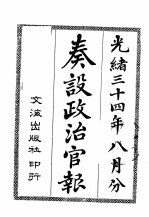 光緒三十四年八月分
奏設政治官報
文海出版社印行